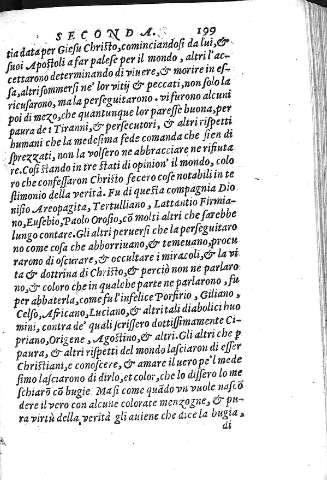 SECONDA. 199
tia data per Giesu Christo, cominciandosi da lui, &
suoi Apostoli a far palese per il mondo, altri l'ac-
cettarono determinando di viuere, & morire in es-
sa, altri sommersi ne' lor vitij & peccati, non solo la
ricusarono, ma la perseguitarono. vi furono alcuni
poi di mezo, che quantunque lor paresse buona, per
paura de i Tiranni, & persecutori, & altri rispetti
humani che la medesima fede comanda che sien di
sprezzati, non la volsero ne abbracciare ne rifiuta
re. Cosi stando in tre stati di opinion' il mondo, colo
ro che confessaron Christo fecero cose notabili in te
stimonio della verità. Fu di questa compagnia Dio
nisio Areopagita, Tertulliano, Lattantio Firmia-
no, Eusebio, Paolo Orosio, cō molti altri che sarebbe
lungo contare. Gli altri peruersi che la perseguitaro
no come cosa che abborriuano, & temeuano, procu
rarono di oscurare, & occultare i miracoli, & la vi
ta & dottrina di Christo, & perciò non ne parlaro
no, & coloro che in qualche parte ne parlarono, fu
per abbaterla, come fu l'infelice Porfirio, Giliano,
Celso, Africano, Luciano, & altri tali diabolici huo
mini, contra de' quali scrissero dottissimamente Ci-
priano, Origene, Agostino, & altri. Gli altri che p
paura, & altri rispetti del mondo lasciaron di esser
Christiani, e conoscere, & amare il uero pe'l mede
simo lasciarono di dirlo, et color, che lo dissero lo me
schiarō cō bugie. Ma si come quādo vn vuole nascō
dere il vero con alcune colorate menzogne, & pu-
ra virtù della verità gli auiene che dice la bugia,
di